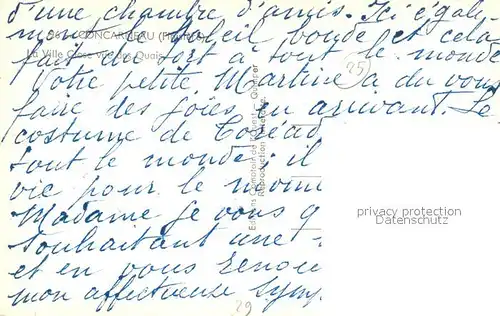 d'une chambre d'amis. Ici égali
ment le soleil boude et cela
fait du tort à tout le monde
Votre petite Martine a du vous
faire des joies en arrivant. Le
costume de
tout le monde : il
vie pour le
Madame je vous q
souhaitant une
et en vous
mon affectueuse symp
CONCARNEAU
La Ville Close vue des Quais
25
29
privacy protection
Datenschutz